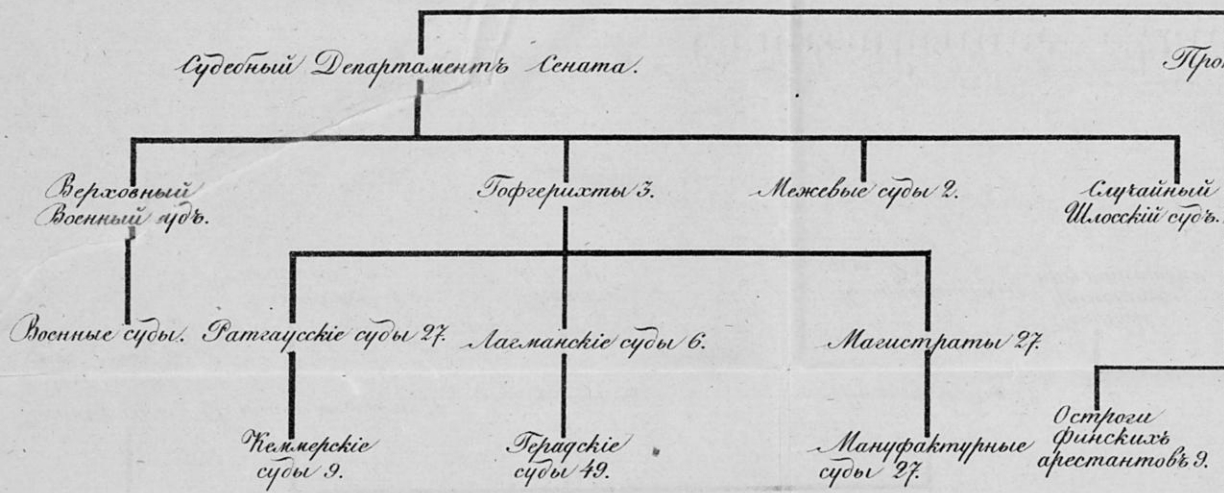 Судебный Департаментъ Сената.
Верховный
Военный удъ.
Гофгерихты 3.
Межевые суды 2.
Случайный
Шлосскій судъ.
Военные суды.
Ратгаусскіе суды 27.
Лагманскіе суды 6.
Магистраты 27.
Кеммерскіе
суды 9.
Герадскіе
суды 49.
Мануфактурные
суды 27.
Остроги
финскихъ
арестантовъ 9.